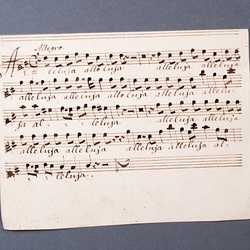 Allegro
A l = leluja alleluja alleluja
alleluja alleluja alleluja allelu
ja al leluja alleluja
alleluja alleluja alleluja al=
leluja.